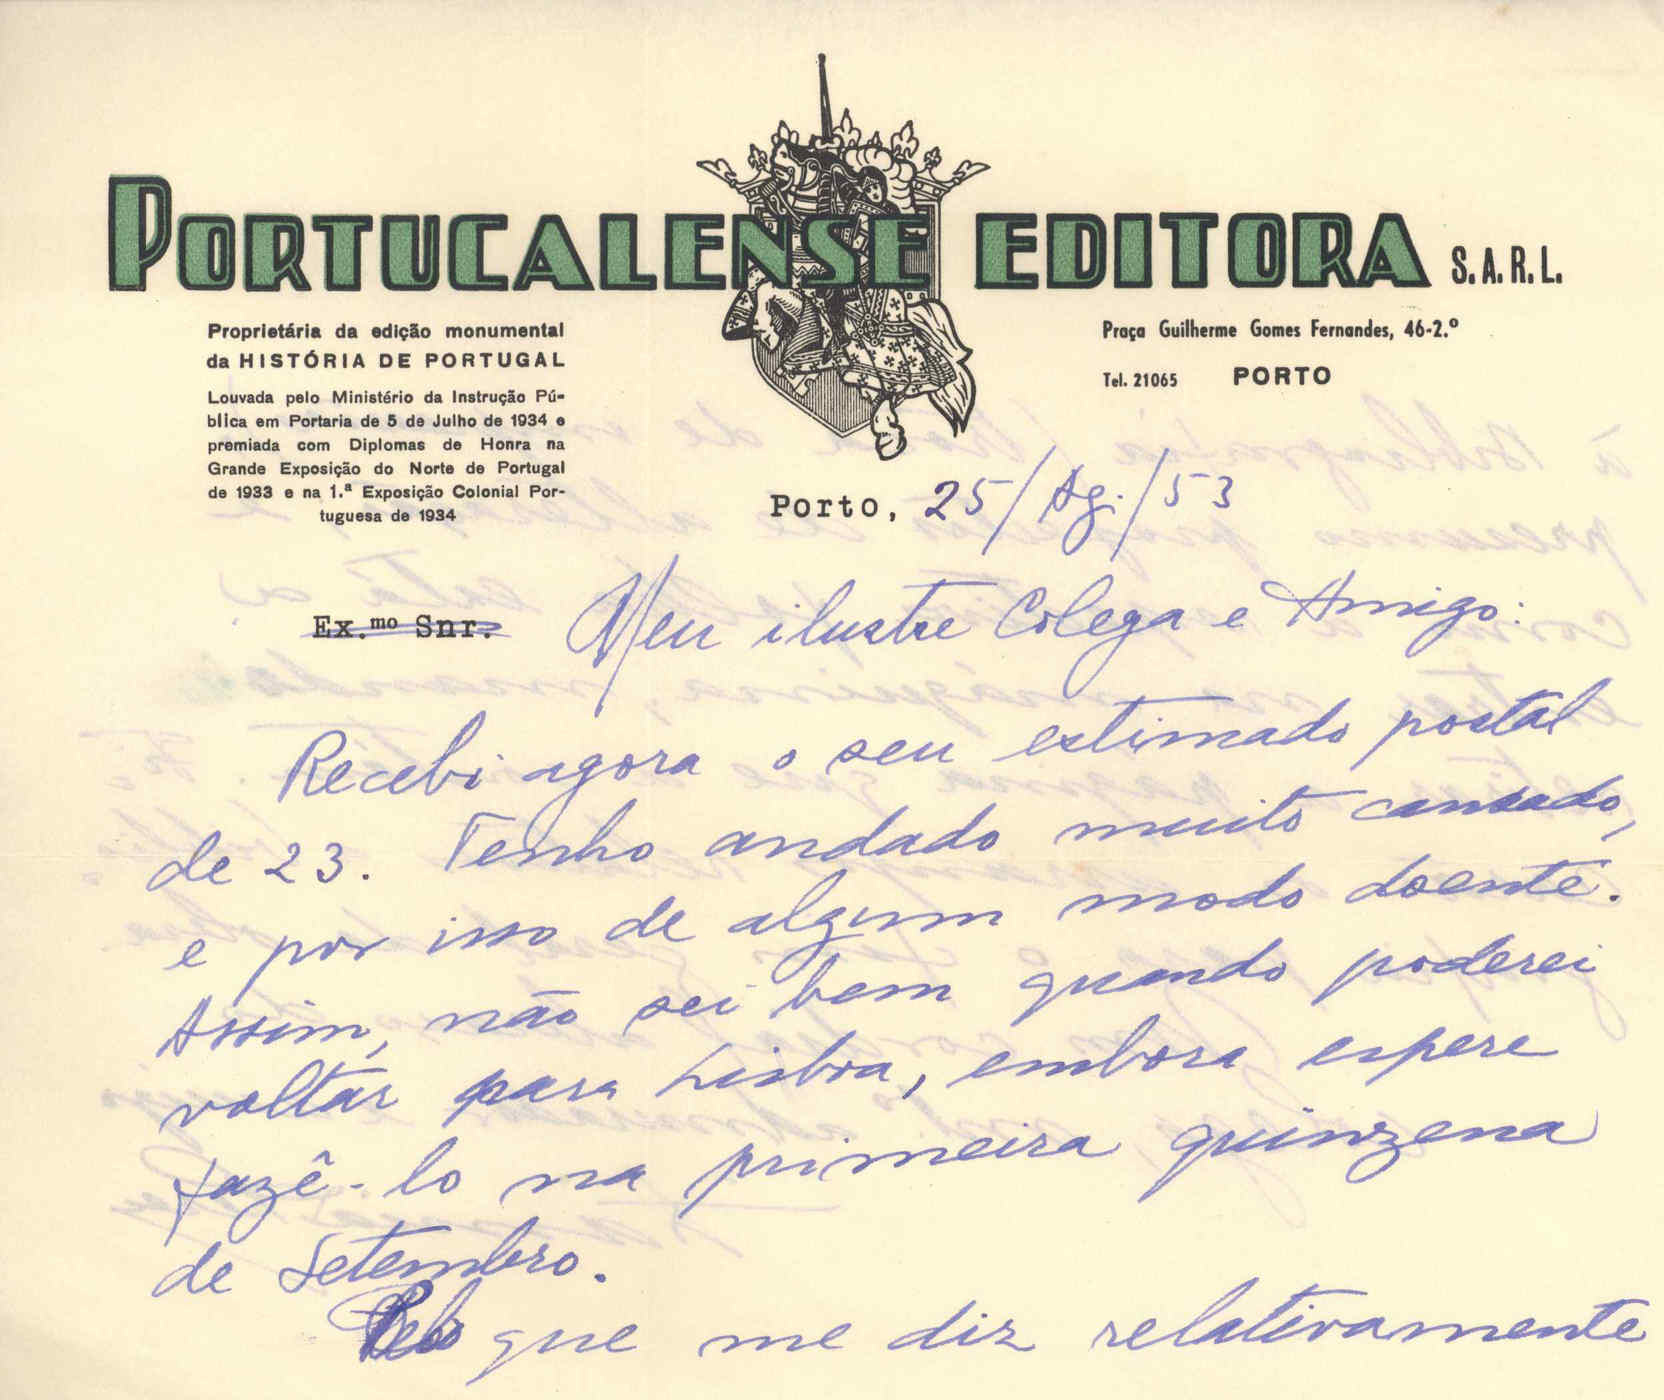 PORTUCALENSE EDITORA S.A.R.L.
Proprietária da edição monumental
da HISTÓRIA DE PORTUGAL
Louvada pelo Ministério da Instrução Pú-
blica em Portaria de 5 de Julho de 1934 e
premiada com Diplomas de Honra na
Grande Exposição do Norte de Portugal
de 1933 e na 1.ª Exposição Colonial Por-
tuguesa de 1934
Praça Guilherme Gomes Fernandes, 46-2.º
Tel. 21065 PORTO
Porto, 25/Ag./53
Ex.mo Snr. Meu ilustre Colega e Amigo:
Recebi agora o seu estimado postal
de 23. Tenho andado muito cansado,
e por isso de algum modo doente.
Assim, não sei bem quando poderei
voltar para Lisboa, embora espere
fazê-lo na primeira quinzena
de Setembro.
Pelo que me diz relativamente